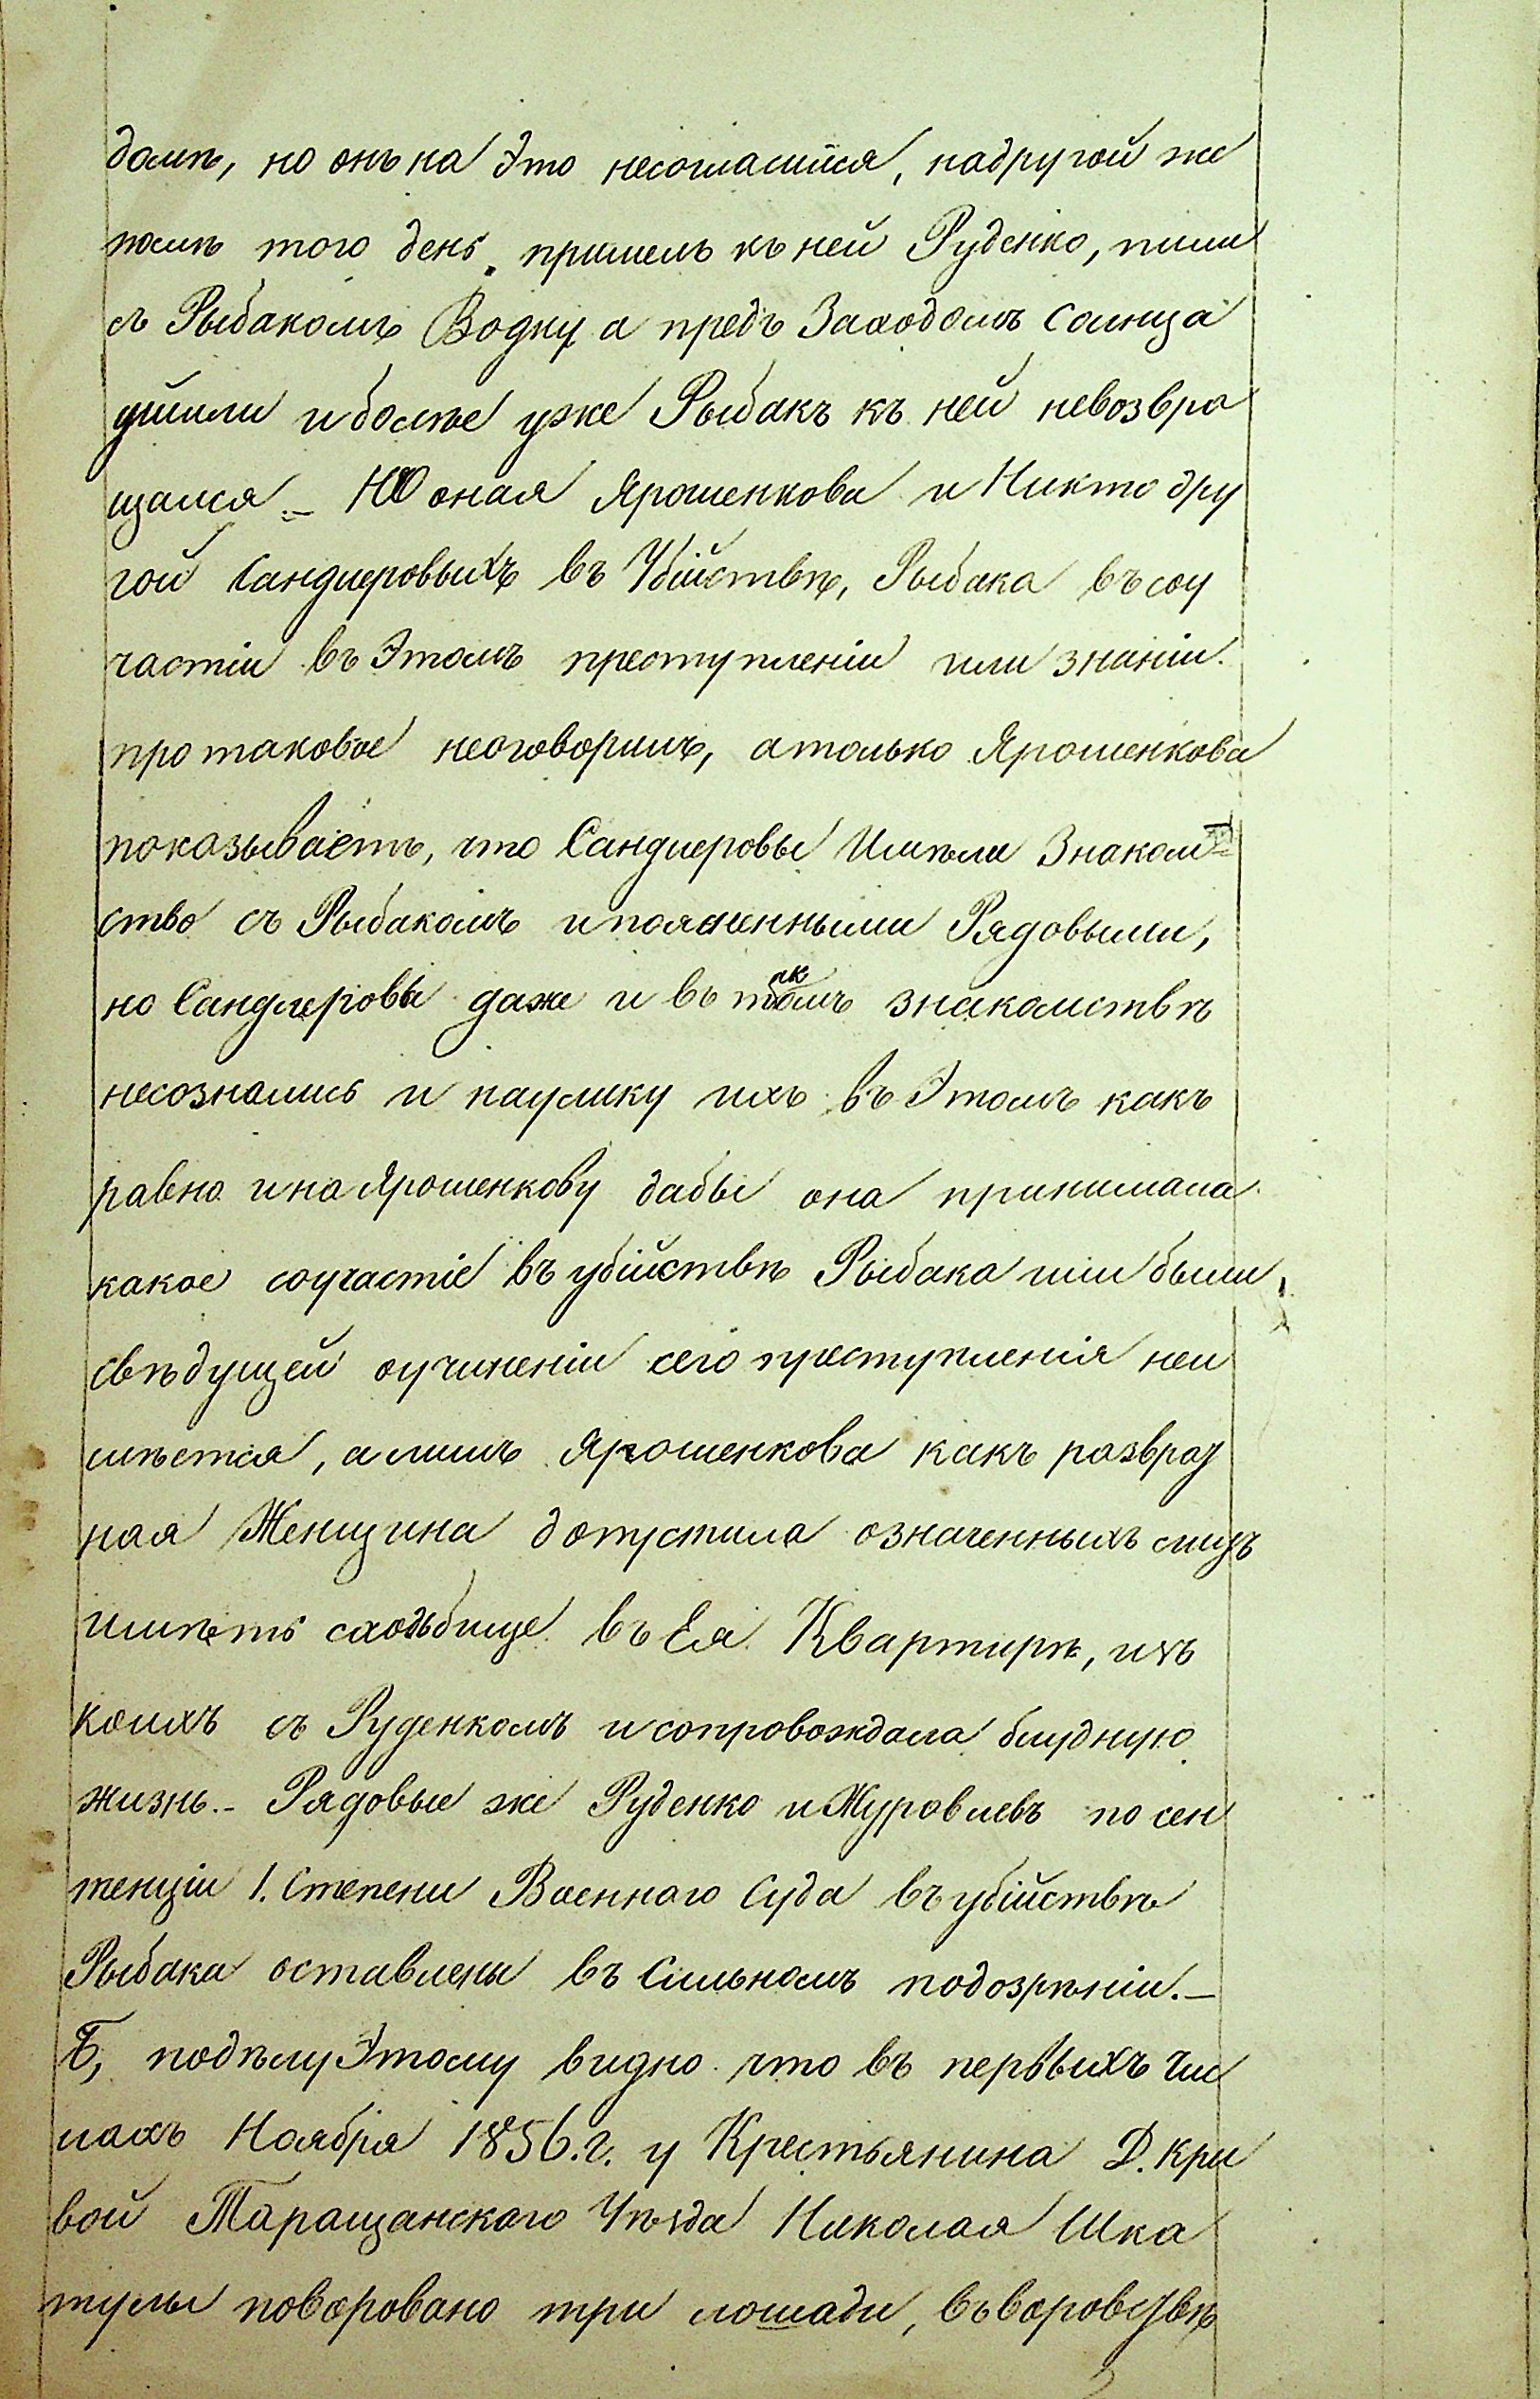 домъ, но онъ на это несогласился, надругой же
послѣ того день, пришелъ къ ней Руденко, пили
съ Рыбакомъ Водку а предъ Заходомъ Солнца
уйшли и болѣе уже Рыбакъ къ ней невозвра
щался. – Но оная Ярошенкова и Никто дру
гой Сандлеровыхъ въ Убійствѣ, Рыбака въ соу
частіи въ Этомъ преступленіи или знаніи
про таковое неоговорилъ, а только Ярошенкова
показываетъ, что Сандлеровы Имѣли Знаком
ство съ Рыбакомъ и поясненными Рядовыми,
но Сандлеровы даже и въ такомъ знакомствѣ
несознались и наулику ихъ въ Этомъ какъ
равно и на Ярошенкову дабы она принимала
какое соучастіе въ убійствѣ Рыбака или были
свѣдущей оучиненіи сего преступленія неи
мѣется, а лишъ Ярошенкова какъ разврат
ная Женщина допустила означенныхъ лицъ
имѣть сходьбище въ Ея Квартирѣ, изъ
коихъ съ Руденкомъ и сопровождала блудную
жизнь. – Рядовые же Руденко и Журовлевъ по сен
тенціи 1. Степени Военного Суда въ убійствѣ
Рыбака оставлены въ Сильномъ подозрѣніи. –
Б, подѣлу Этому видно что въ первыхъ Чис
лахъ Ноября 1856. г. у Крестьянина Д. Кри
вой Таращанского Уѣзда Николая Шка
тулы поворовано три лошади, въ воровствѣ